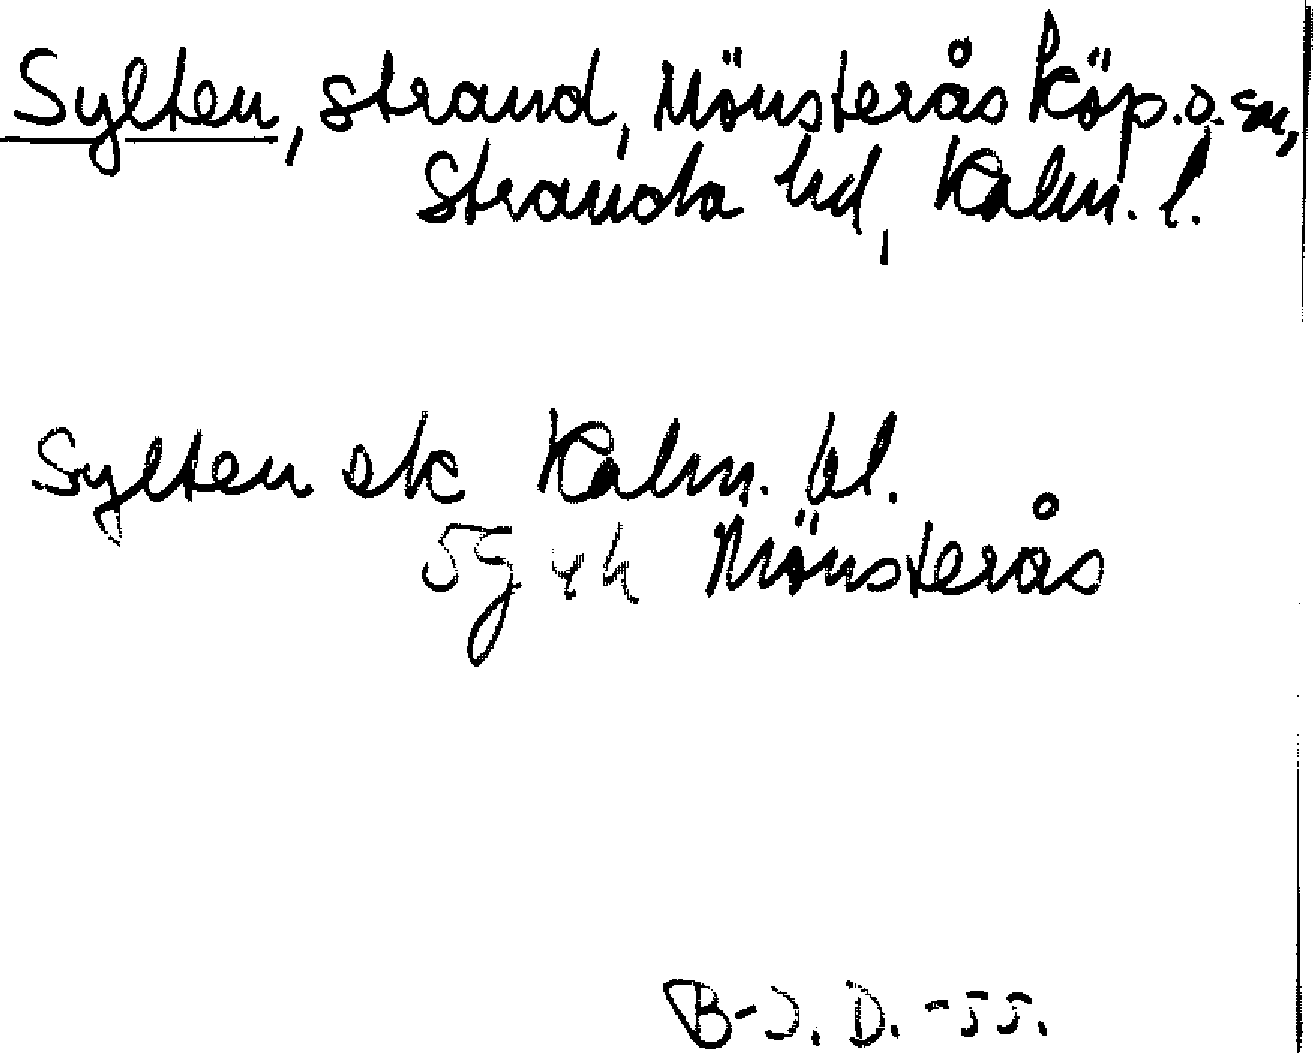 Sylten, strand, Mönsterås köp. o. sn,
Stranda hd, Kalm. l.
Sylten ek Kalm. bl.
5g 4h Mönsterås
B-J. D. -55.